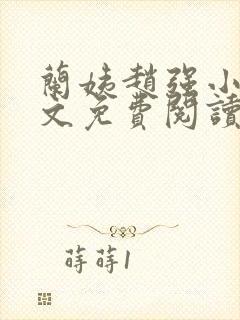 蘭姨趙強小
文免費閱讀
蒔蒔1